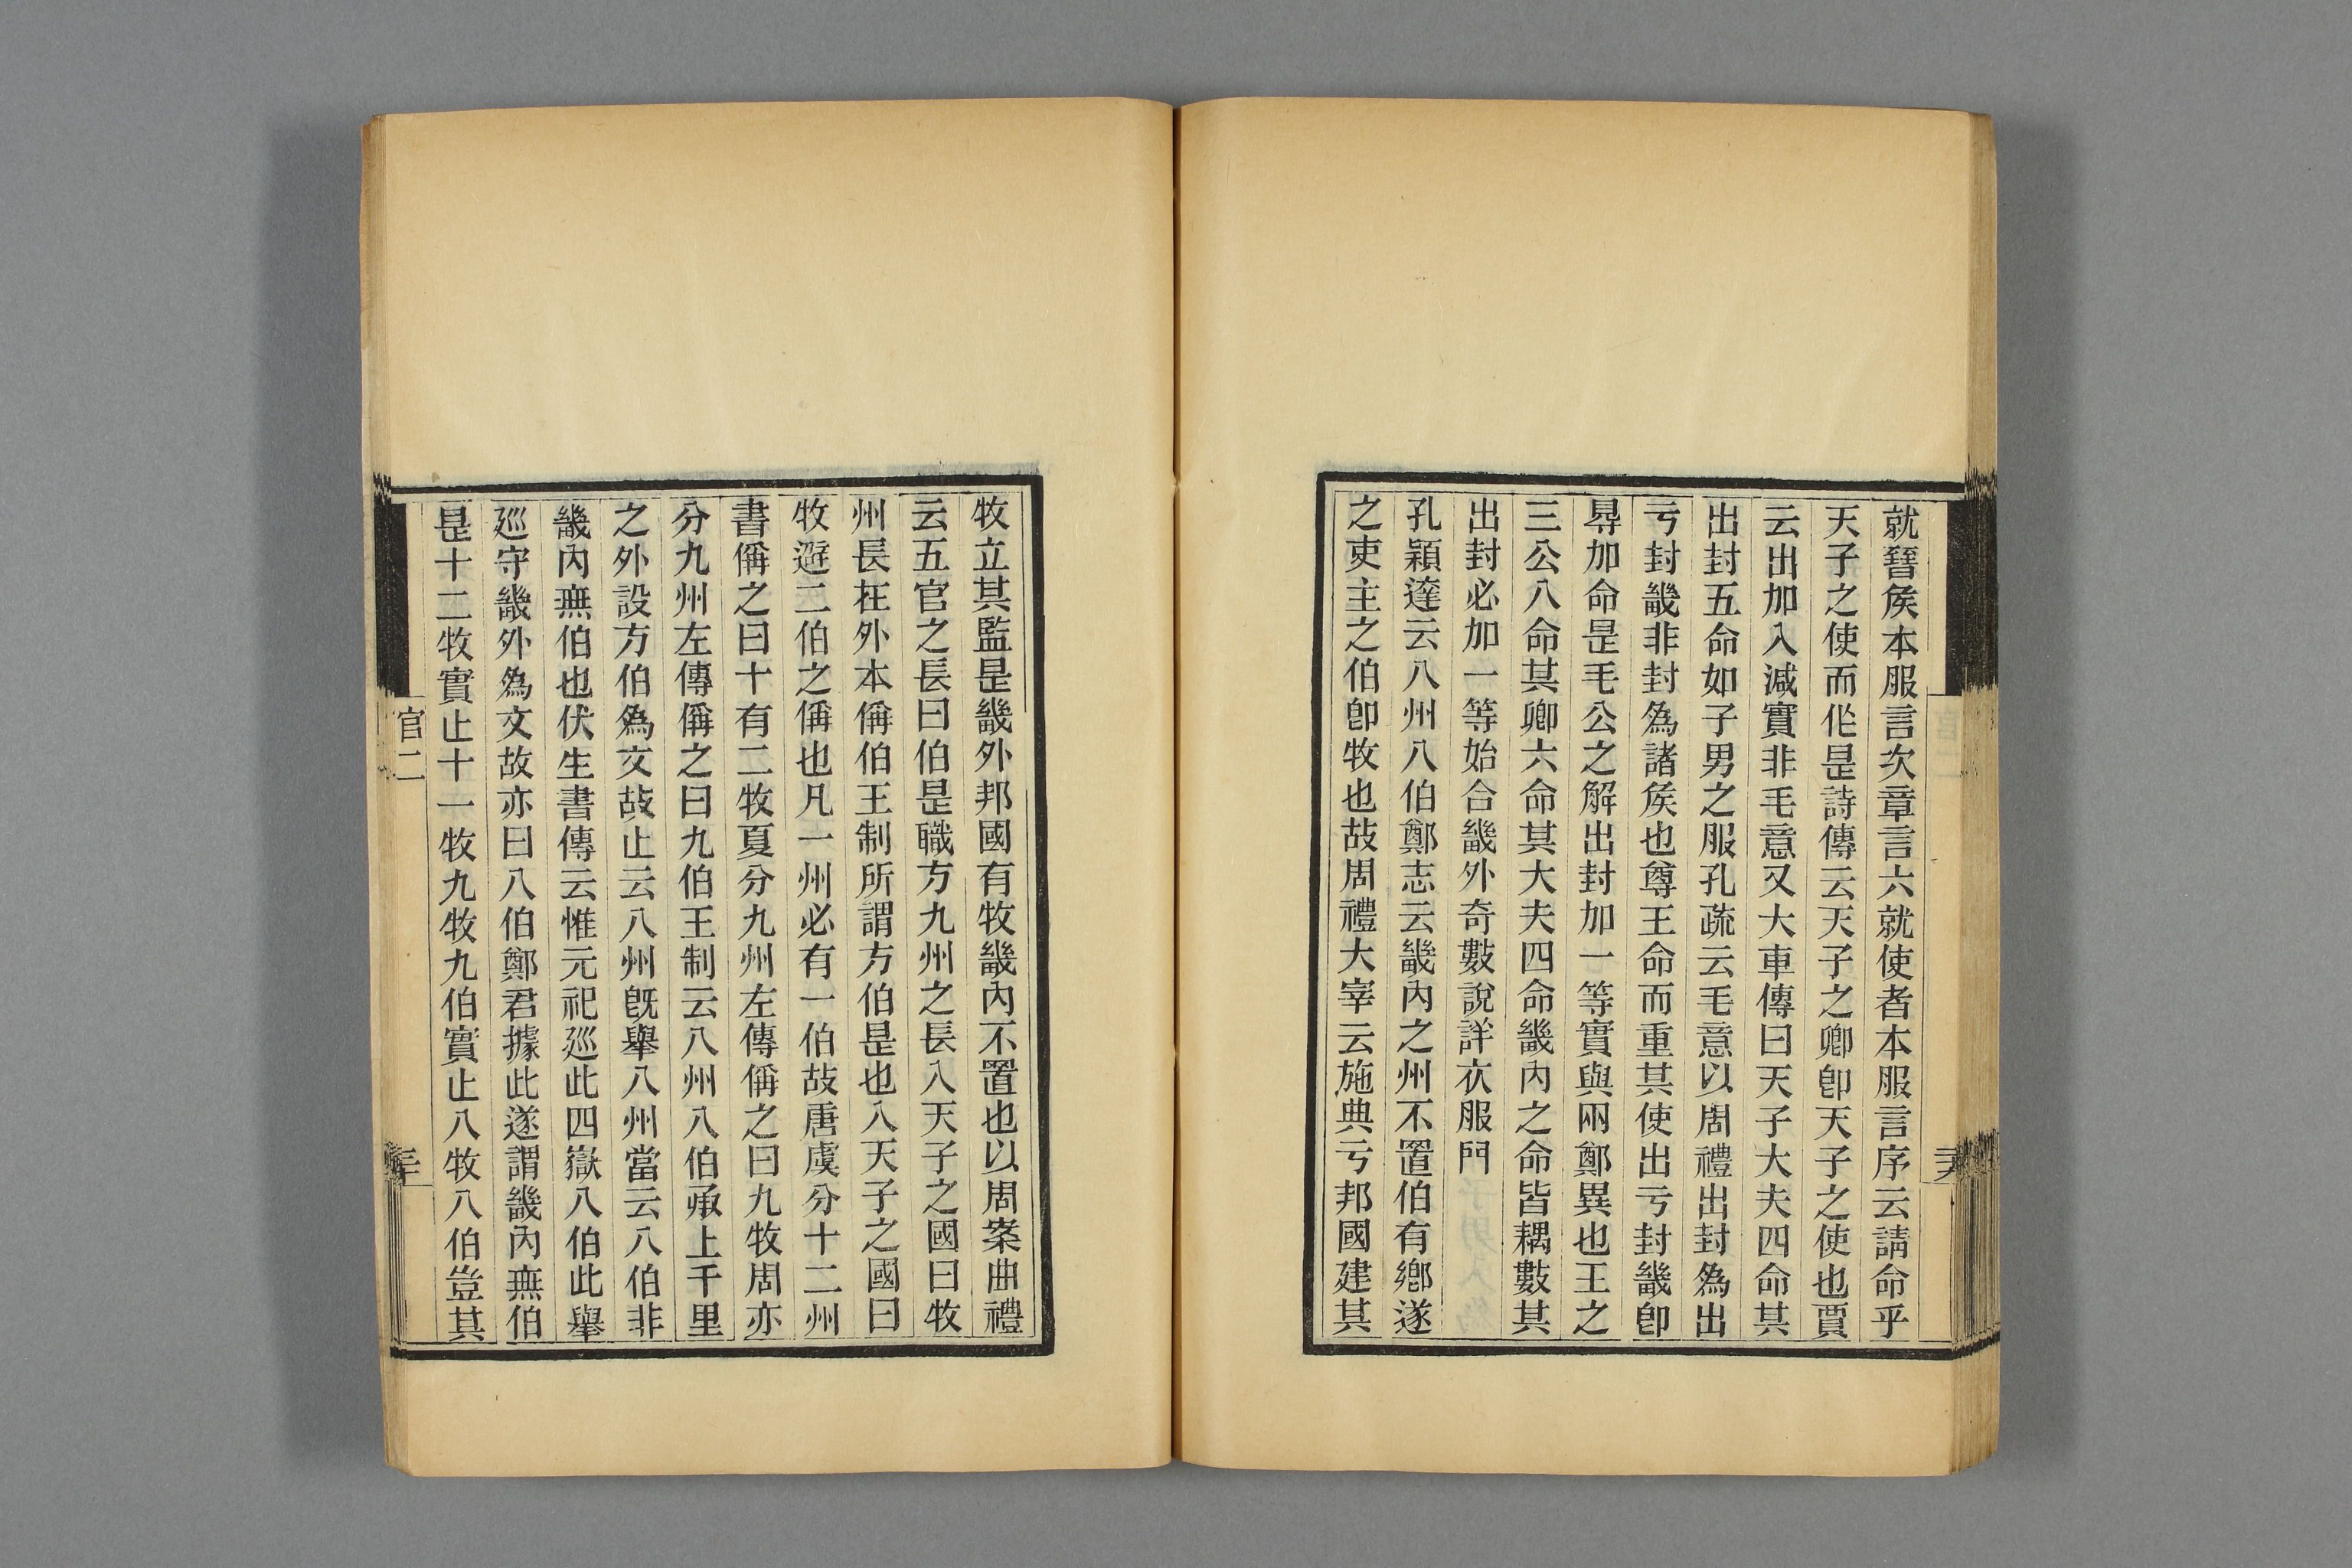 就晉矦本服言次章言六就使者本服言序云請命乎
天子之使而作是詩傳云天子之卿卽天子之使也賈
云出加入減實非毛意又大車傳曰天子大夫四命其
出封五命如子男之服孔疏云毛意以周禮出封爲出
亏封畿非封爲諸矦也尊王命而重其使出亏封畿卽
㝵加命是毛公之解出封加一等實與兩鄭異也王之
三公八命其卿六命其大夫四命畿內之命皆耦數其
出封必加一等始合畿外奇數說詳衣服門
孔穎達云八州八伯鄭志云畿內之州不置伯有鄉遂
之吏主之伯卽牧也故周禮大宰云施典亏邦國建其
牧立其監是畿外邦國有牧畿內不置也以周案曲禮
云五官之長曰伯是職方九州之長入天子之國曰牧
州長在外本偁伯王制所謂方伯是也入天子之國曰
牧避二伯之偁也凡一州必有一伯故唐虞分十二州
書偁之曰十有二牧夏分九州左傳偁之曰九牧周亦
分九州左傳偁之曰九伯王制云八州八伯承上千里
之外設方伯爲文故止云八州旣舉八州當云八伯非
畿內無伯也伏生書傳云惟元祀巡此四嶽八伯此舉
巡守畿外爲文故亦曰八伯鄭君據此遂謂畿內無伯
是十二牧實止十一牧九牧九伯實止八牧八伯豈其
官二
三十